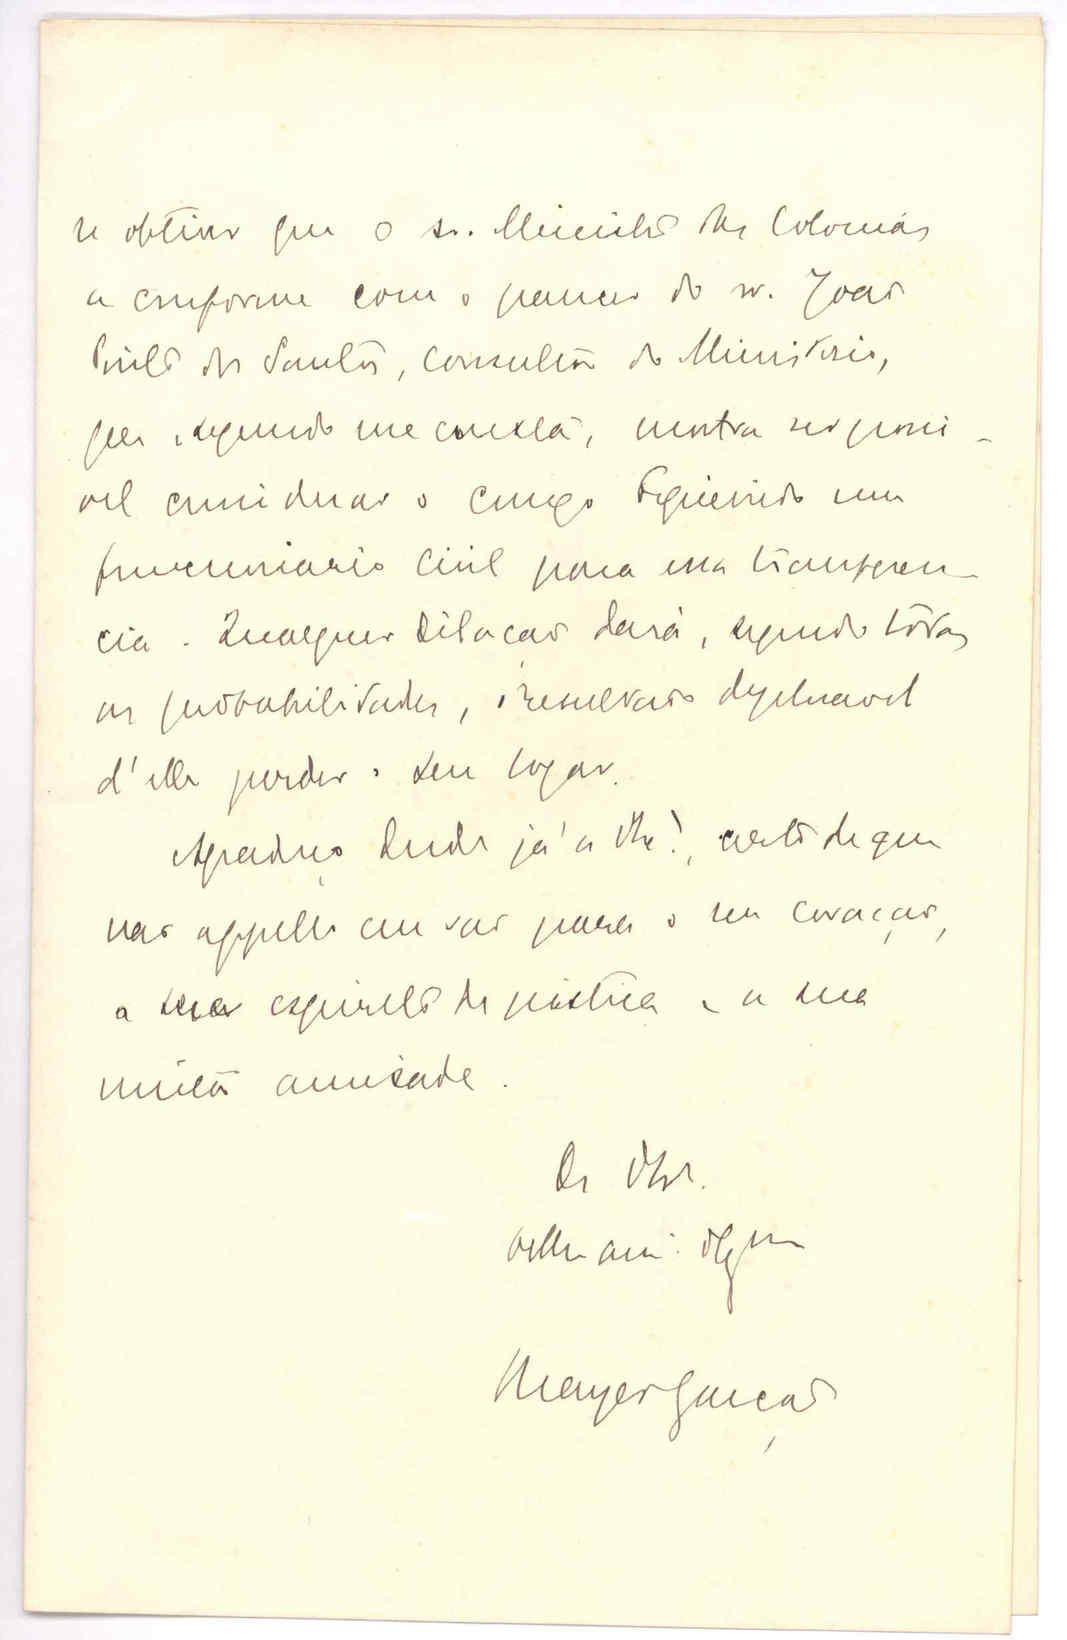 se obtiver que o sr. Ministro das Colonias
se conforme com o parecer do sr. João
Pinto dos Santos, consultor do Ministerio,
que, segundo me consta, mostra ser possi-
vel considerar o conego Figueiredo um
funccionario civil para essa transferen-
cia. Qualquer dilação dará, segundo todas
as probabilidades, o resultado deploravel
d'elle perder o seu logar.
Agradeço desde já a V. Ex.ª, certo de que
não appello em vão para o seu coração,
o seu espirito de justiça e a sua
muita amisade.
De V. Ex.ª
velho am.º obg.mo
Mayer Garção